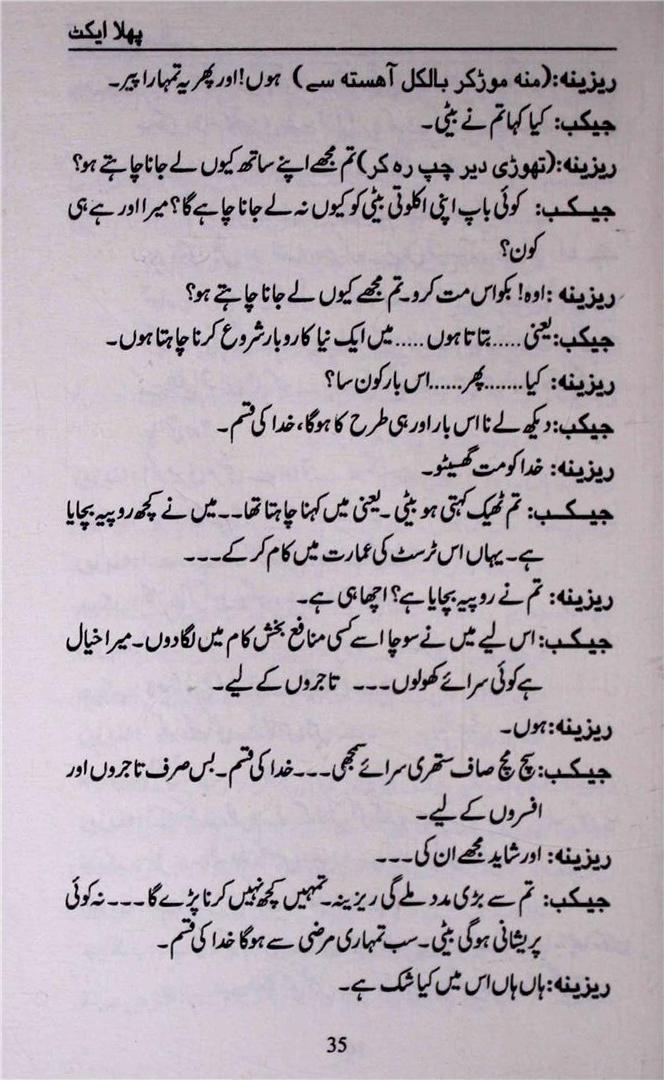 پہلا ایکٹ
ریزینہ: (منہ موڑ کر بالکل آہستہ سے) ہوں! اور پھر یہ تمہارا پیر۔
جیکب: کیا کہا تم نے بیٹی۔
ریزینہ: (تھوڑی دیر چپ رہ کر) تم مجھے اپنے ساتھ کیوں لے جانا چاہتے ہو؟
جیکب: کوئی باپ اپنی اکلوتی بیٹی کو کیوں نہ لے جانا چاہے گا؟ میرا اور ہے ہی
کون؟
ریزینہ: اوہ! بکواس مت کرو۔ تم مجھے کیوں لے جانا چاہتے ہو؟
جیکب: یعنی ..... بتاتا ہوں ..... میں ایک نیا کاروبار شروع کرنا چاہتا ہوں۔
ریزینہ: کیا ....... پھر ...... اس بار کون سا؟
جیکب: دیکھ لے نا اس بار اور ہی طرح کا ہوگا، خدا کی قسم۔
ریزینہ: خدا کو مت گھسیٹو۔
جیکب: تم ٹھیک کہتی ہو بیٹی۔ یعنی میں کہنا چاہتا تھا۔۔ میں نے کچھ روپیہ بچایا
ہے۔ یہاں اس ٹرسٹ کی عمارت میں کام کر کے ۔۔۔
ریزینہ: تم نے روپیہ بچایا ہے؟ اچھا ہی ہے۔
جیکب: اس لیے میں نے سوچا اسے کسی منافع بخش کام میں لگا دوں۔ میرا خیال
ہے کوئی سرائے کھولوں ۔۔۔ تاجروں کے لیے۔
ریزینہ: ہوں۔
جیکب: سچ مچ صاف ستھری سرائے سمجھی ۔۔۔ خدا کی قسم۔ بس صرف تاجروں اور
افسروں کے لیے۔
ریزینہ: اور شاید مجھے ان کی ۔۔۔
جیکب: تم سے بڑی مدد ملے گی ریزینہ۔ تمہیں کچھ نہیں کرنا پڑے گا ۔۔۔ نہ کوئی
پریشانی ہوگی بیٹی۔ سب تمہاری مرضی سے ہوگا خدا کی قسم۔
ریزینہ: ہاں ہاں اس میں کیا شک ہے۔
35